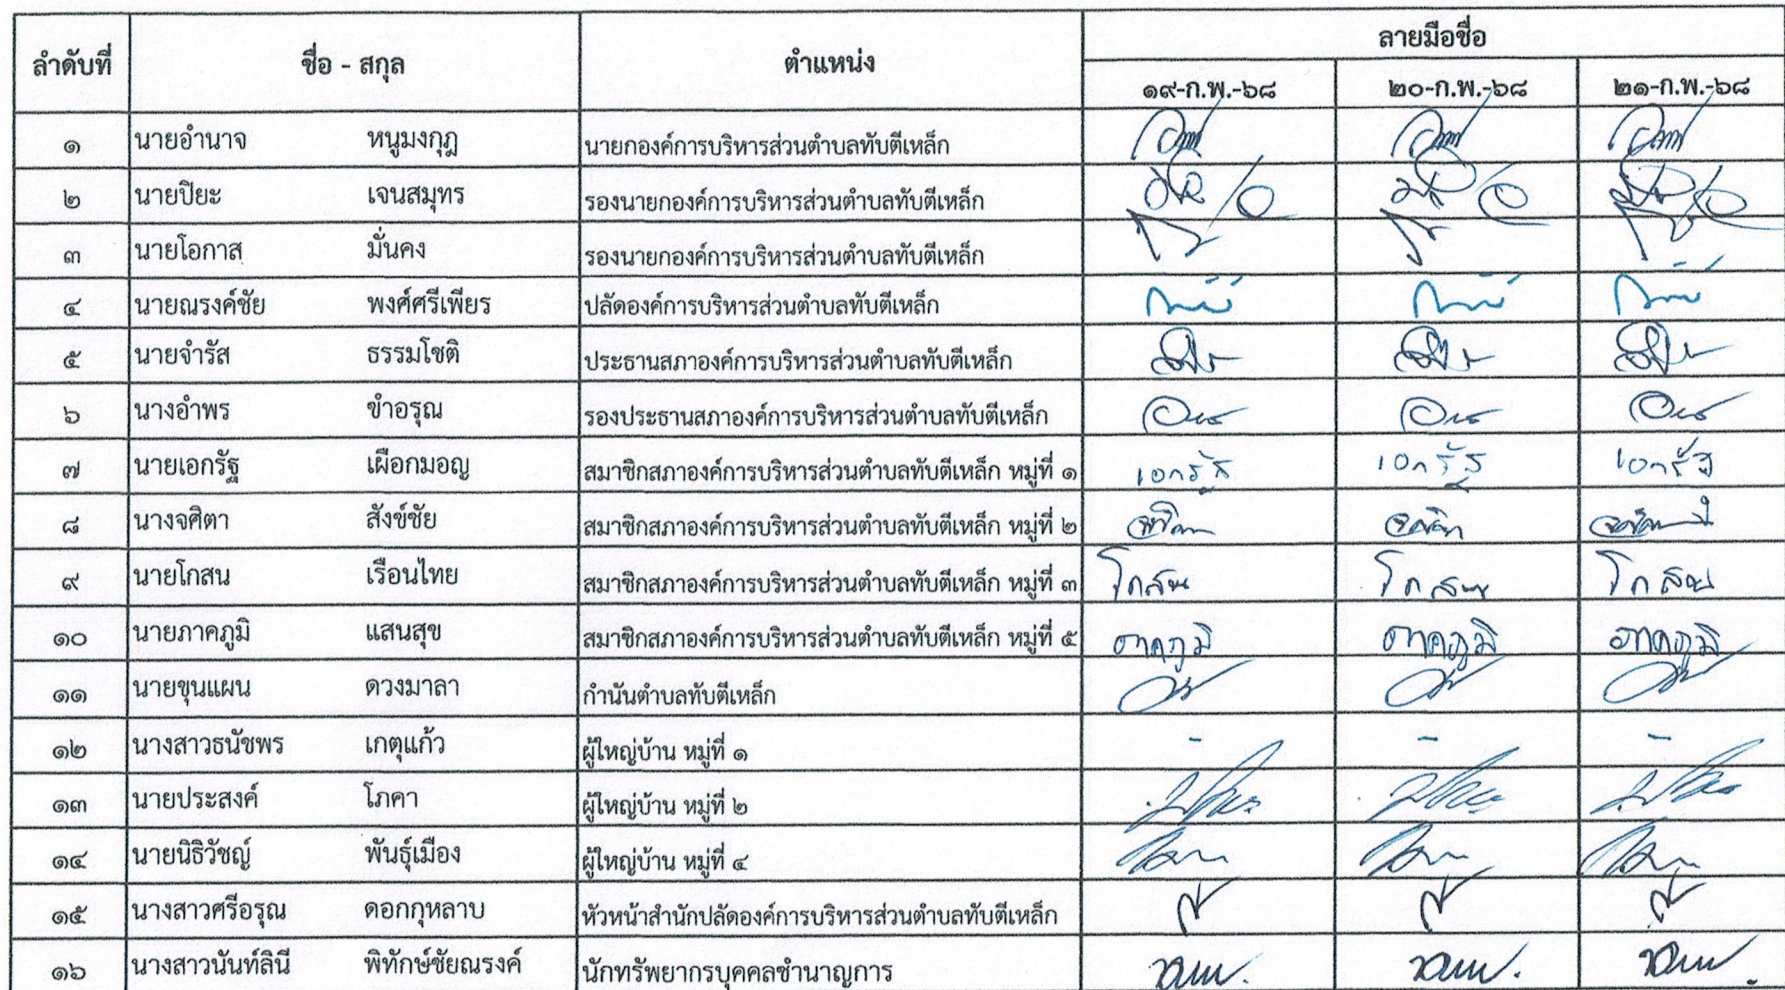 ลำดับที่ ชื่อ - สกุล ตำแหน่ง ลายมือชื่อ
๑๙-ก.พ.-๖๘ ๒๐-ก.พ.-๖๘ ๒๑-ก.พ.-๖๘
๑ นายอำนาจ หนูมงกุฎ นายกองค์การบริหารส่วนตำบลทับตีเหล็ก
๒ นายปิยะ เจนสมุทร รองนายกองค์การบริหารส่วนตำบลทับตีเหล็ก
๓ นายโอกาส มั่นคง รองนายกองค์การบริหารส่วนตำบลทับตีเหล็ก
๔ นายณรงค์ชัย พงศ์ศรีเพียร ปลัดองค์การบริหารส่วนตำบลทับตีเหล็ก
๕ นายจำรัส ธรรมโชติ ประธานสภาองค์การบริหารส่วนตำบลทับตีเหล็ก
๖ นางอำพร ขำอรุณ รองประธานสภาองค์การบริหารส่วนตำบลทับตีเหล็ก
๗ นายเอกรัฐ เผือกมอญ สมาชิกสภาองค์การบริหารส่วนตำบลทับตีเหล็ก หมู่ที่ ๑ เอกรัฐ เอกรัฐ เอกรัฐ
๘ นางจศิตา สังข์ชัย สมาชิกสภาองค์การบริหารส่วนตำบลทับตีเหล็ก หมู่ที่ ๒
๙ นายโกสน เรือนไทย สมาชิกสภาองค์การบริหารส่วนตำบลทับตีเหล็ก หมู่ที่ ๓ โกสน โกสน โกสน
๑๐ นายภาคภูมิ แสนสุข สมาชิกสภาองค์การบริหารส่วนตำบลทับตีเหล็ก หมู่ที่ ๕ ภาคภูมิ ภาคภูมิ ภาคภูมิ
๑๑ นายขุนแผน ดวงมาลา กำนันตำบลทับตีเหล็ก
๑๒ นางสาวธนัชพร เกตุแก้ว ผู้ใหญ่บ้าน หมู่ที่ ๑ - - -
๑๓ นายประสงค์ โภคา ผู้ใหญ่บ้าน หมู่ที่ ๒
๑๔ นายนิธิวัชญ์ พันธุ์เมือง ผู้ใหญ่บ้าน หมู่ที่ ๔
๑๕ นางสาวศรีอรุณ ดอกกุหลาบ หัวหน้าสำนักปลัดองค์การบริหารส่วนตำบลทับตีเหล็ก
๑๖ นางสาวนันท์ลินี พิทักษ์ชัยณรงค์ นักทรัพยากรบุคคลชำนาญการ